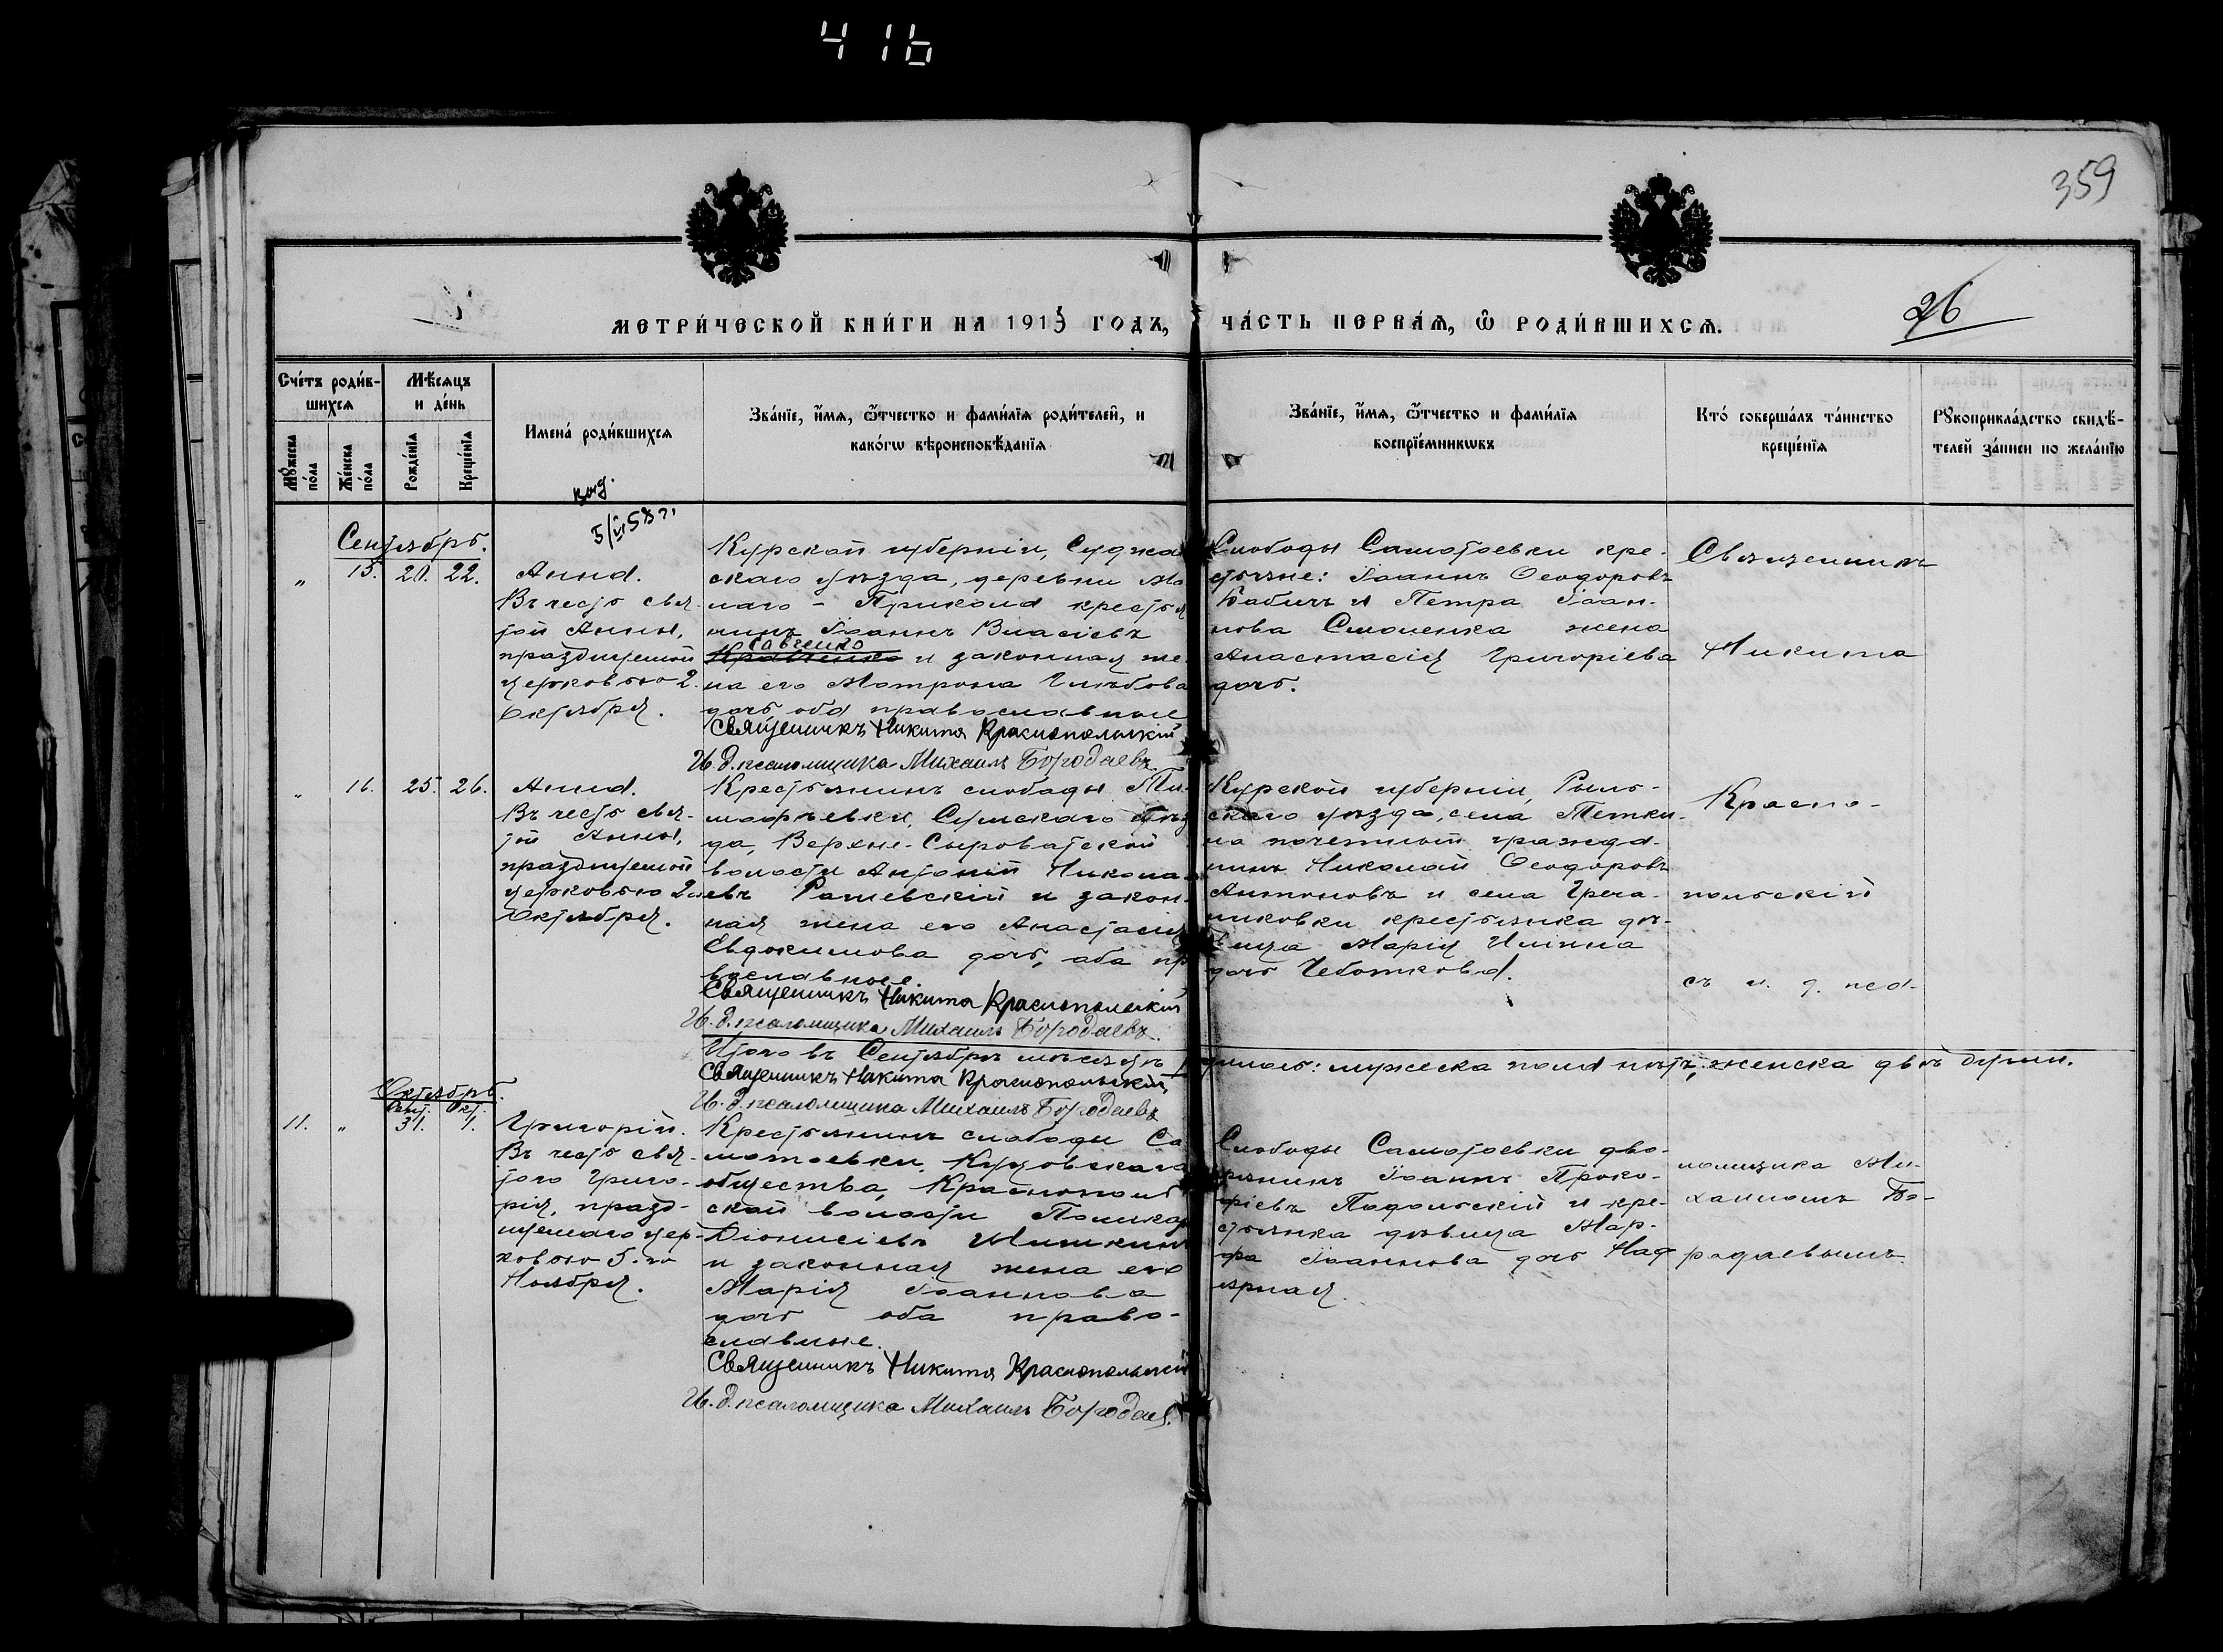 416
359
26
МЕТРИЧЕСКОЙ КНИГИ НА 1913 ГОДЪ, ЧАСТЬ ПЕРВАЯ, Ѽ РОДИВШИХСЯ.
Счетъ родив-
шихся
Мужеска пола
Женска пола
Мѣсяцъ
и день
Рожденія
Крещенія
Имена родившихся
Званїе, имя, ѿтчество и фамилїя родителей, и
какогѡ вѣроисповѣданїя
Званїе, имя, ѿтчество и фамилїя
воспрїемникѡвъ
Кто совершалъ таинство
крещенїя
Рукоприкладство свидѣ-
телей записи по желанїю
Сентябрь.
„ 15. 20. 22.
Анна.
Въ честь свя-
той Анны,
празднуемой
церковью 2.
Октября.
Курской губерніи, Суджа
скаго уѣзда, деревни Ма
лаго - Прикола крестья
нинъ Іоаннъ Власіевъ
Савченко
Кравченко и законная же-
на его Матрона Глѣбова
дочь оба православные
Священникъ Никита Краснопольскій
И. д. псаломщика Михаилъ Бородаевъ.
Слободы Самотоевки кре-
стьяне: Іоаннъ Ѳеодоровъ
Бабичъ и Петра Іоан-
нова Смоленка жена
Анастасія Григоріева
дочь.
Священникъ
Никита
Красно-
польскій
съ и. д. пса-
ломщика Ми-
хаиломъ Бо-
родаевымъ.
„ 16. 25. 26.
Анна.
Въ честь свя-
той Анны,
празднуемой
церковью 2
Октября.
Крестьянинъ слободы Ти-
моѳѣевки, Сумскаго уѣз
да, Верхне-Сыроватской
волости Антоній Никола-
евъ Рашевскій и закон-
ная жена его Анастасія
Евдокимова дочь, оба пр
вославные.
Священникъ Никита Краснопольскій
И. д. псаломщика Михаилъ Бородаевъ.
Курской губерніи, Рыль-
скаго уѣзда, села Теткин-
на почетный гражда-
нинъ Николай Ѳеодоровъ
Антоновъ и села Греча-
никовки крестьянка дѣ-
вица Марія Иліина
дочь Чеботкова.
Итого въ Сентябрѣ мѣсяцѣ родилось: мужеска пола нѣтъ, женска двѣ души.
Священникъ Никита Краснопольскій
И. д. псаломщика Михаилъ Бородаевъ
Октябрь.
Сент. Окт.
11. „ 31. 1.
Григорій.
Въ честь свя-
того Григо-
рія, празд-
нуемаго цер-
ковью 5.го
Ноября.
Крестьянинъ слободы Са
мотоевки,
общества, Краснополь
ской волости
Діонисіевъ
и законная жена его
Марія Іоаннова
дочь оба право-
славные.
Священникъ Никита Краснопольскій
И. д. псаломщика Михаилъ Бородаев.
Слободы Самотоевки дво-
рянинъ Іоаннъ Проко-
фіевъ Подольскій и кре-
стьянка дѣвица Мар-
фа Іоаннова дочь Над
ярная.